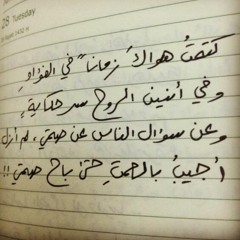 28 Tuesday
كتمتُ هواكَ زماناً في الفؤادِ
وفي أنين الروح سر حكايةٍ
وعن سؤال الناس عن صمتي، لم أزل
أُجيبُ بالصمتِ حتى باح صمتي !!